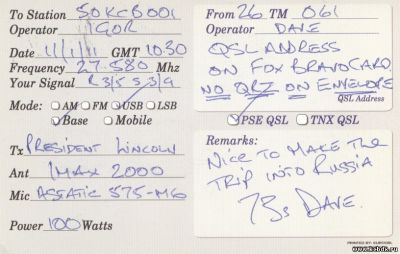 To Station 50KCB001
Operator IGOR
Date 1/1/11 GMT 10:30
Frequency 27.580 Mhz
Your Signal R3/5 S3/9
Mode: AM FM USB LSB
Base Mobile
Tx PRESIDENT LINCOLN
Ant IMAX 2000
Mic ASTATIC 575-M6
Power 100 Watts
From 26 TM 061
Operator DAVE
QSL ADDRESS
ON FOX BRAVO CARD
NO QRZ ON ENVELOPE
QSL Address
PSE QSL TNX QSL
Remarks:
NICE TO MAKE THE
TRIP INTO RUSSIA
73s DAVE.
www.kshdx.ru